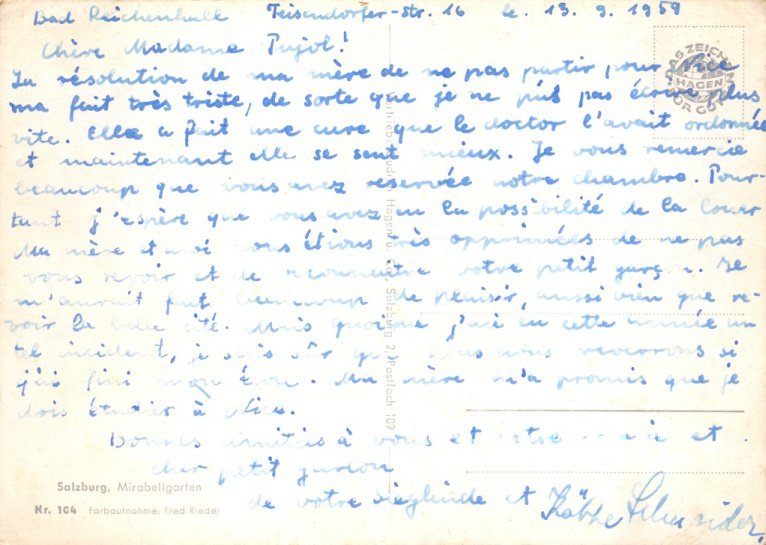 Bad Reichenhall Teisendorfer-str. 16 le. 13. 9. 1959
Chère Madame Pujol!
La résolution de ma mère de ne pas partir pour Nice
ma fait très triste, de sorte que je ne pûs pas écrire plus
vite. Elle a fait une cure que le doctor l'avait ordonnée
et maintenant elle se sent mieux. Je vous remercie
beaucoup que vous avez reservée notre chambre. Pour-
tant j'espère que vous avez eu la possibilité de la louer
Ma mère et moi nous étions très opprimées de ne pas
vous revoir et de reconnaitre votre petit garçon. Ze
m'aurait fait beaucoup de plaisir, aussi bien que re-
voir la belle cité. Mais quoique j'aie eu cette année un
tel incident, je suis sûr que nous nous reverrons si
j'ai fini mon . Ma mère m'a promis que je
dois étudier à Nice.
Bonnes amitiés à vous et votre et
cher petit garçon
de votre Sieglinde et Käthe Schneider.
DAS ZEICHEN FÜR GUTE
HAGEN
Hagen u. Co., Salzburg 2, Postfach 102
Salzburg, Mirabellgarten
Nr. 104 Farbaufnahme: Fred Rieder